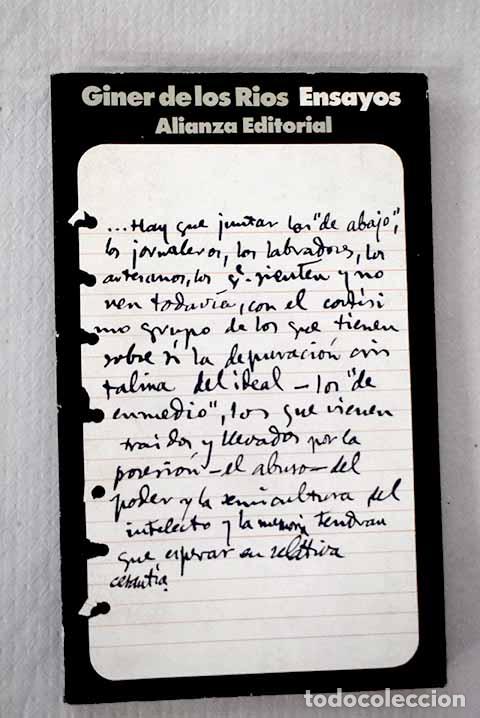 Giner de los Rios Ensayos
Alianza Editorial
...Hay que juntar los "de abajo",
los jornaleros, los labradores, los
artesanos, los q. sienten y no
ven todavía, con el cortísi
mo grupo de los que tienen
sobre sí la depuración cris
talina del ideal — los "de
enmedio", los que vienen
traidos y llevados por la
posesión — el abuso — del
poder y la semicultura del
intelecto y la memoria tendran
que esperar en relativa
cesantía.
todocoleccion